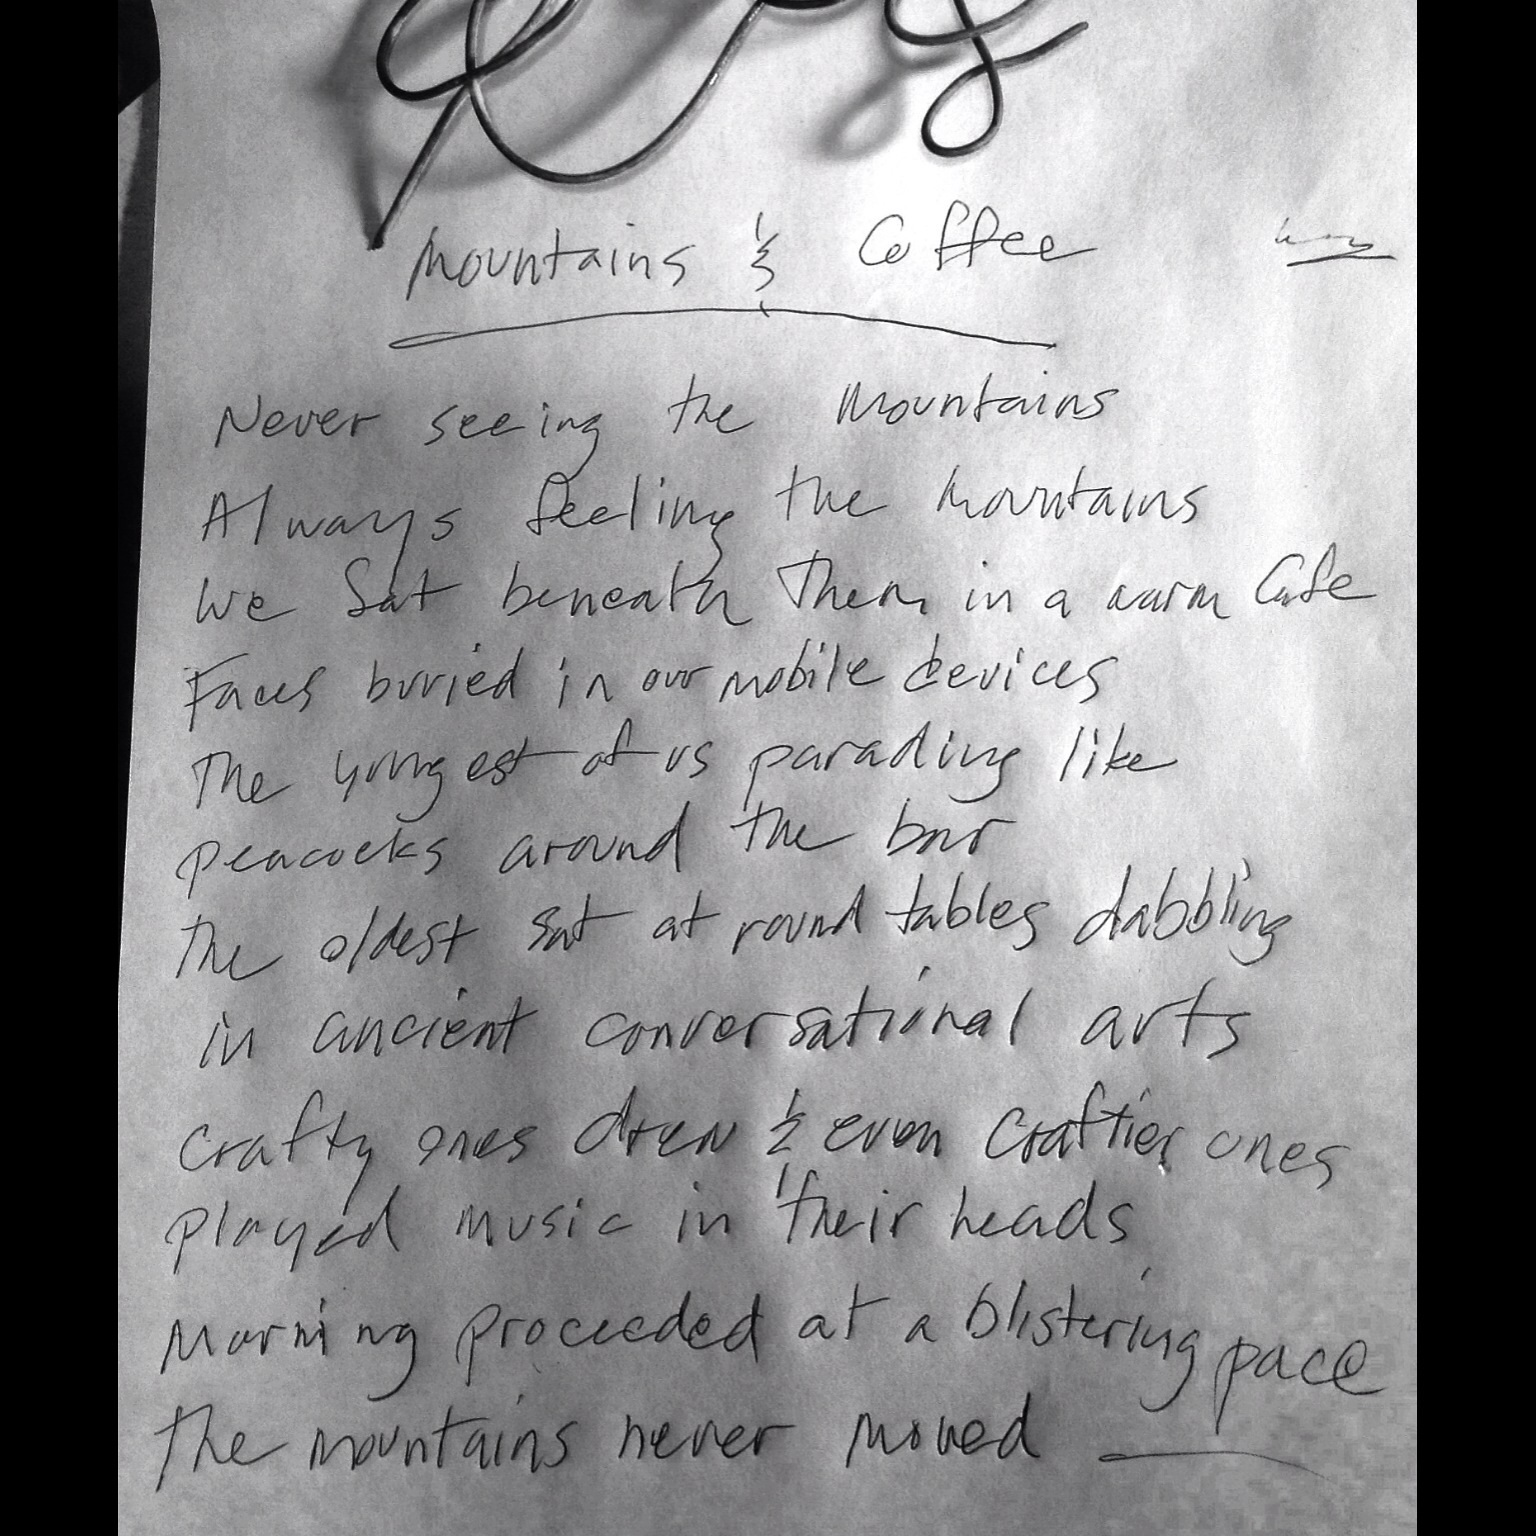 Mountains & Coffee
Never seeing the Mountains
Always feeling the mountains
We Sat beneath Them in a warm Cafe
Faces buried in our mobile devices
The youngest of us parading like
peacocks around the bar
The oldest sat at round tables dabbling
in ancient conversational arts
Crafty ones drew & even Craftier ones
played music in their heads
Morning proceeded at a blistering pace
The mountains never moved